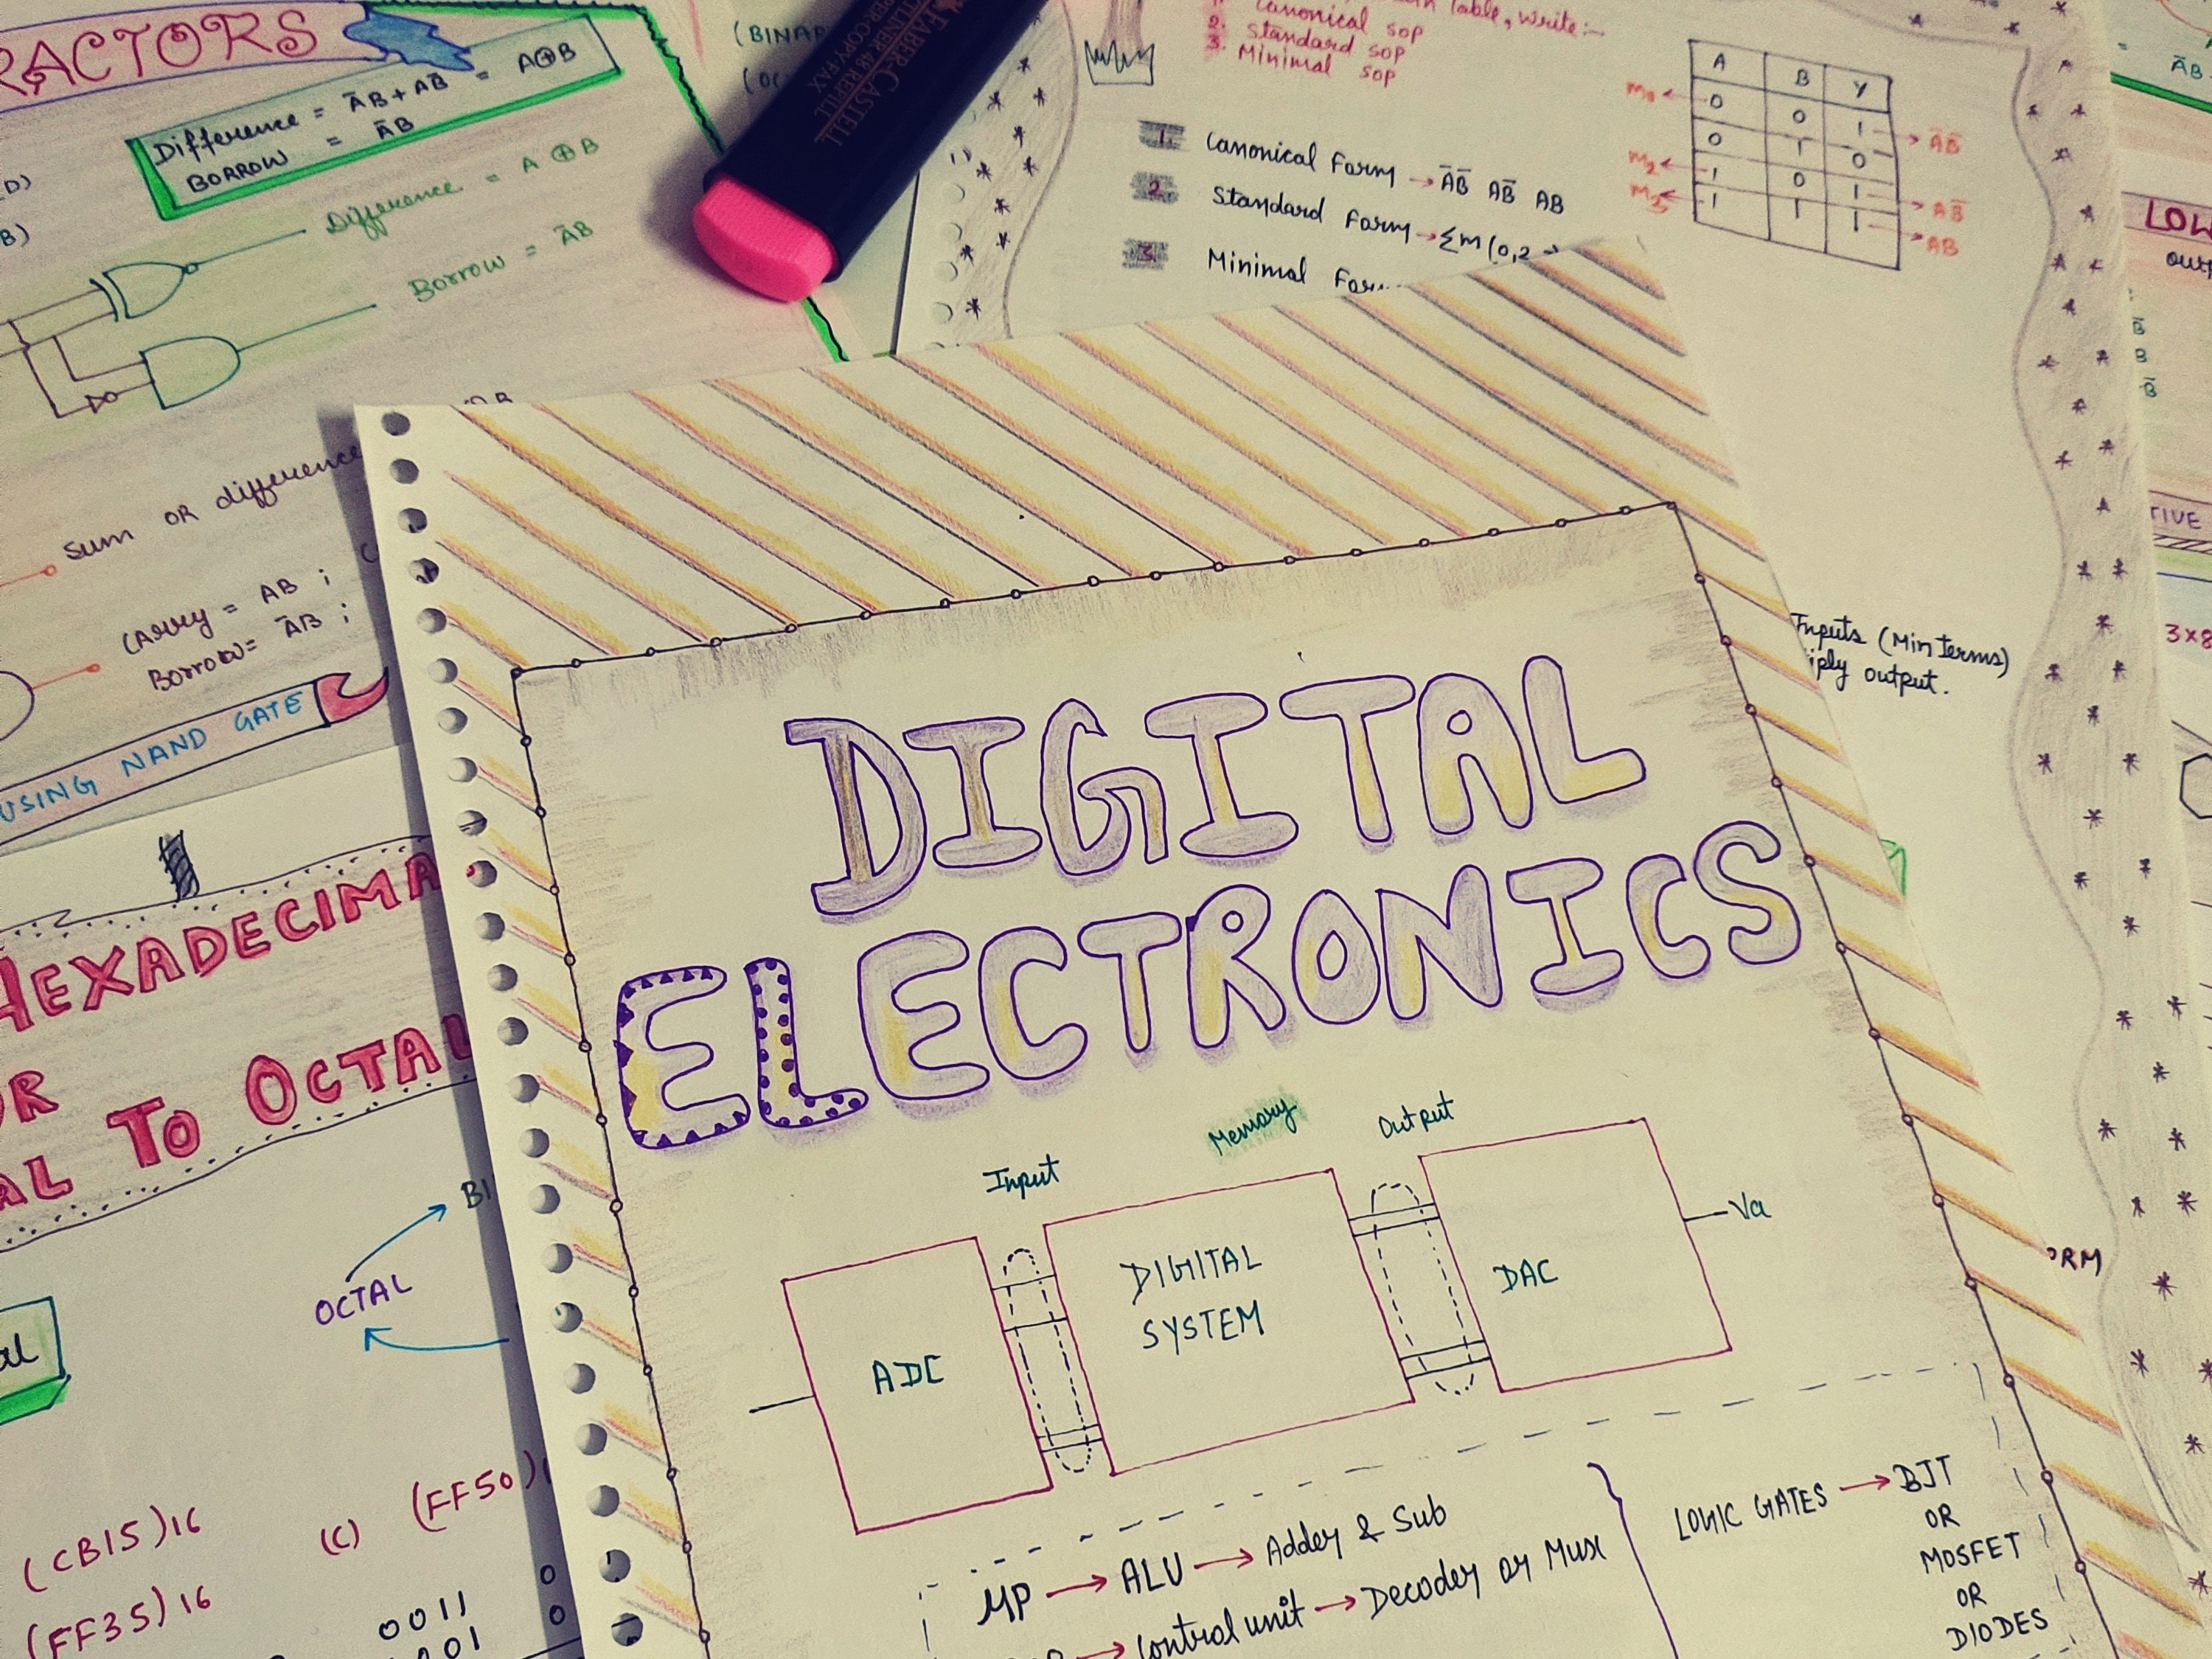 RACTORS
Difference = A̅B + AB̅ = A⊕B
BORROW = A̅B
Difference = A⊕B
Borrow = A̅B
Sum OR difference
Carry = AB ;
Borrow = A̅B ;
USING NAND GATE
HEXADECIMA
OR
AL TO OCTAL
BI
OCTAL
al
(CB15)16
(C) (FF50)1
(FF35)16
0011
001
0
0
(BINAR
FABER-CASTELL
TEXTLINER 48 REFILL
PAPER·COPY·FAX
Table, write:-
1. Canonical SOP
2. Standard SOP
3. Minimal SOP
1. Canonical Form → A̅B̅ AB̅ AB
2. Standard Form → Σm(0,2
3. Minimal For
A B Y
M0 ← 0 0 1 → A̅B̅
0 1 0
M2 ← 1 0 1 → AB̅
M3 ← 1 1 1 → AB
A̅B
LOW
outp
B̅
B
B̅
TIVE
3×8
Inputs (Min terms)
iply output.
ORM
DIGITAL
ELECTRONICS
Input
Memory
Output
ADC
DIGITAL
SYSTEM
DAC
Va
μP → ALU → Adder & Sub
→ Control unit → Decoder or Mux
LOGIC GATES → BJT
OR
MOSFET
OR
DIODES